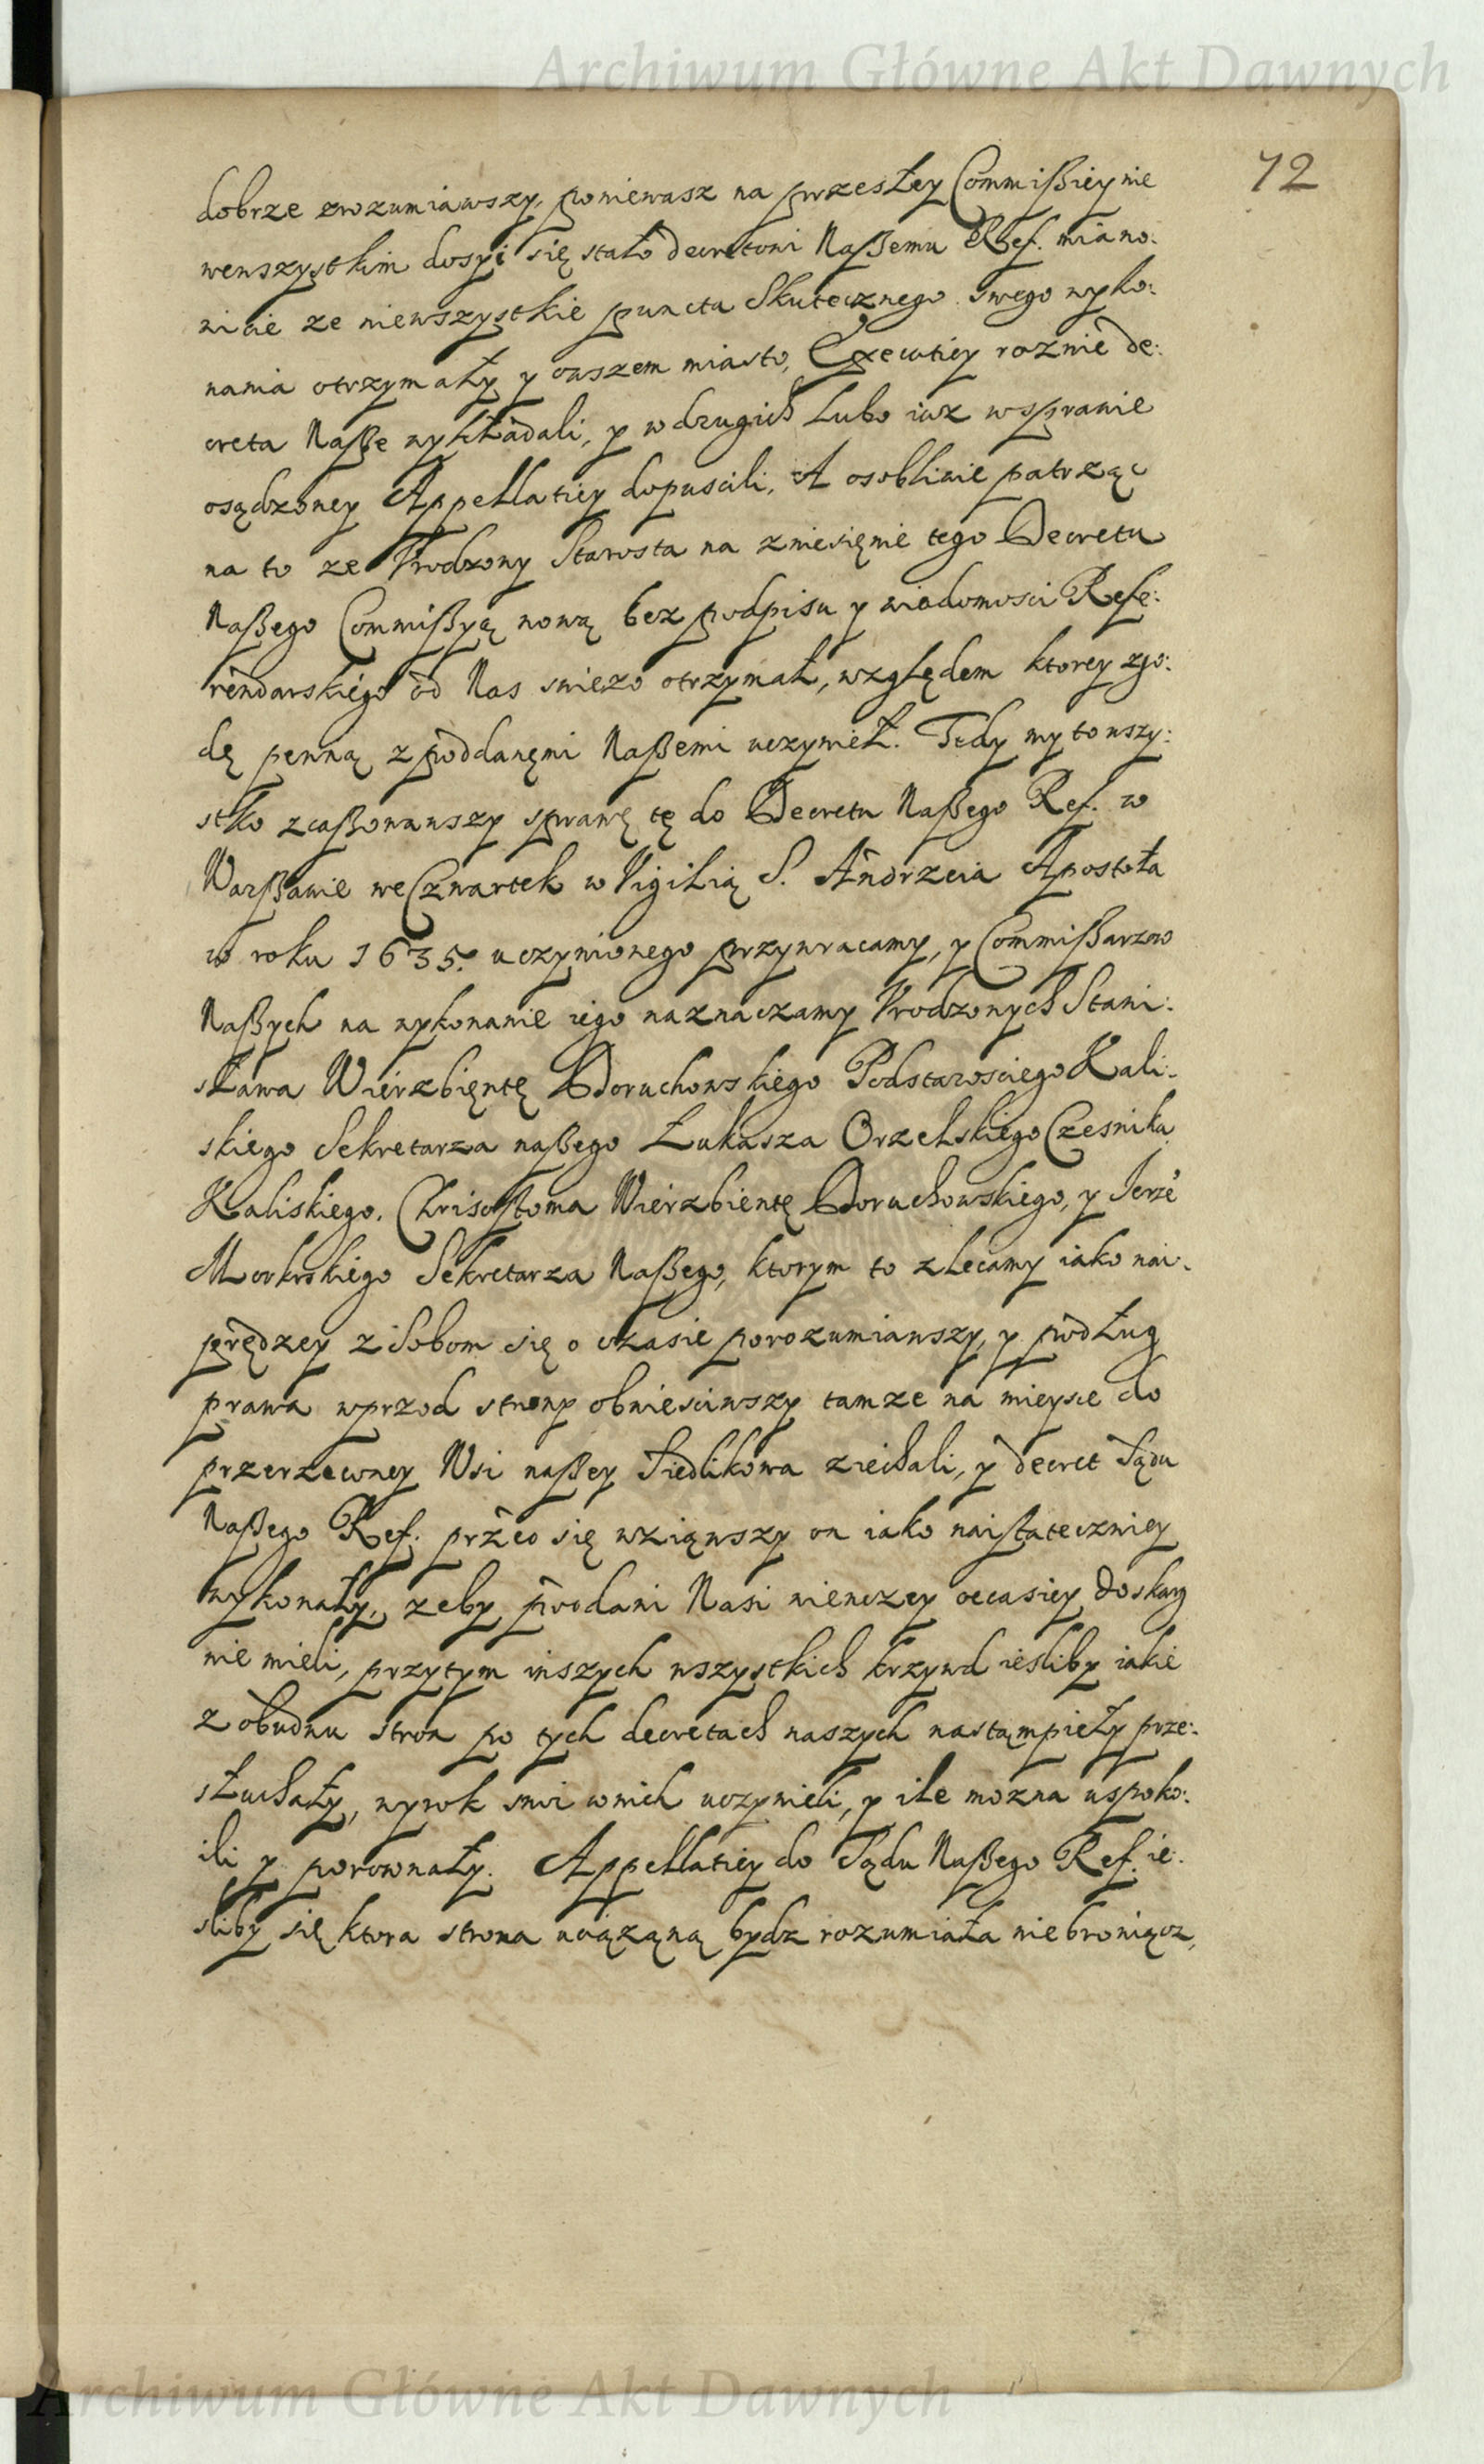 Archiwum Główne Akt Dawnych
72
dobrze zrozumiawszy, poniewasz na przeszłey Commißiey nie
wewszystkim dosyć się stało decretowi Naßemu Ref. miano:
wicie ze niewszystkie puncta Skutecznego swego wyko:
nania otrzymały y owszem miasto, Executiey roznie de:
creta Naße wykładali, y w drugich lubo iuz wsprawie
osądzoney Appellatiey dopuscili, A osobliwie patrząc
na to ze Vrodzony Starosta na zniesięnie tego Decretu
Naßego Commißyą nową bez podpisu y wiadomosci Refe:
rendarskiego od Nas swiezo otrzymał, względem ktorey zgo:
dę pewną z poddanęmi Naßemi uczynieł. Tedy my towszy:
stko zcaßowawszy sprawę tę do Decretu Naßego Ref. w
Warßawie we Czwartek w Vigilią S. Andrzeia Apostoła
w roku 1635. uczynionego przywracamy, y Commißarzow
Naßych na wykonanie iego naznaczamy Vrodzonych Stani:
sława Wierzbiętę Doruchowskiego Podstarosciego Kali:
skiego Sekretarza naßego Łukasza Orzelskiego Czesnika
Kaliskiego, Chrisostoma Wierzbientę Doruchowskiego, y Jerze
Sekretarza Naßego, ktorym to zlecamy iako nai:
prędzey z Sobom się o czasie porozumiawszy, y podług
prawa wprzod strony obwiesciwszy tamze na mieysce do
przerzeconey Wsi naßey Siedlikowa ziechali, y decret Sądu
Naßego Ref. przed się wziąwszy on iako naistateczniey
wykonały, zeby poddani Nasi niewczey occasiey do skarg
nie mieli, przytym inszych wszystkich krzywd iesliby iakie
z obudwu stron po tych decretach naszych nastąmpieły prze:
słuchały, wyrok swoi wnich uczynieli, y ile mozna uspoko:
ili y porownały. Appellatiey do Sądu Naßego Ref. ie:
sliby się ktora strona uciązaną bydz rozumiała niebroniącz,
Archiwum Główne Akt Dawnych